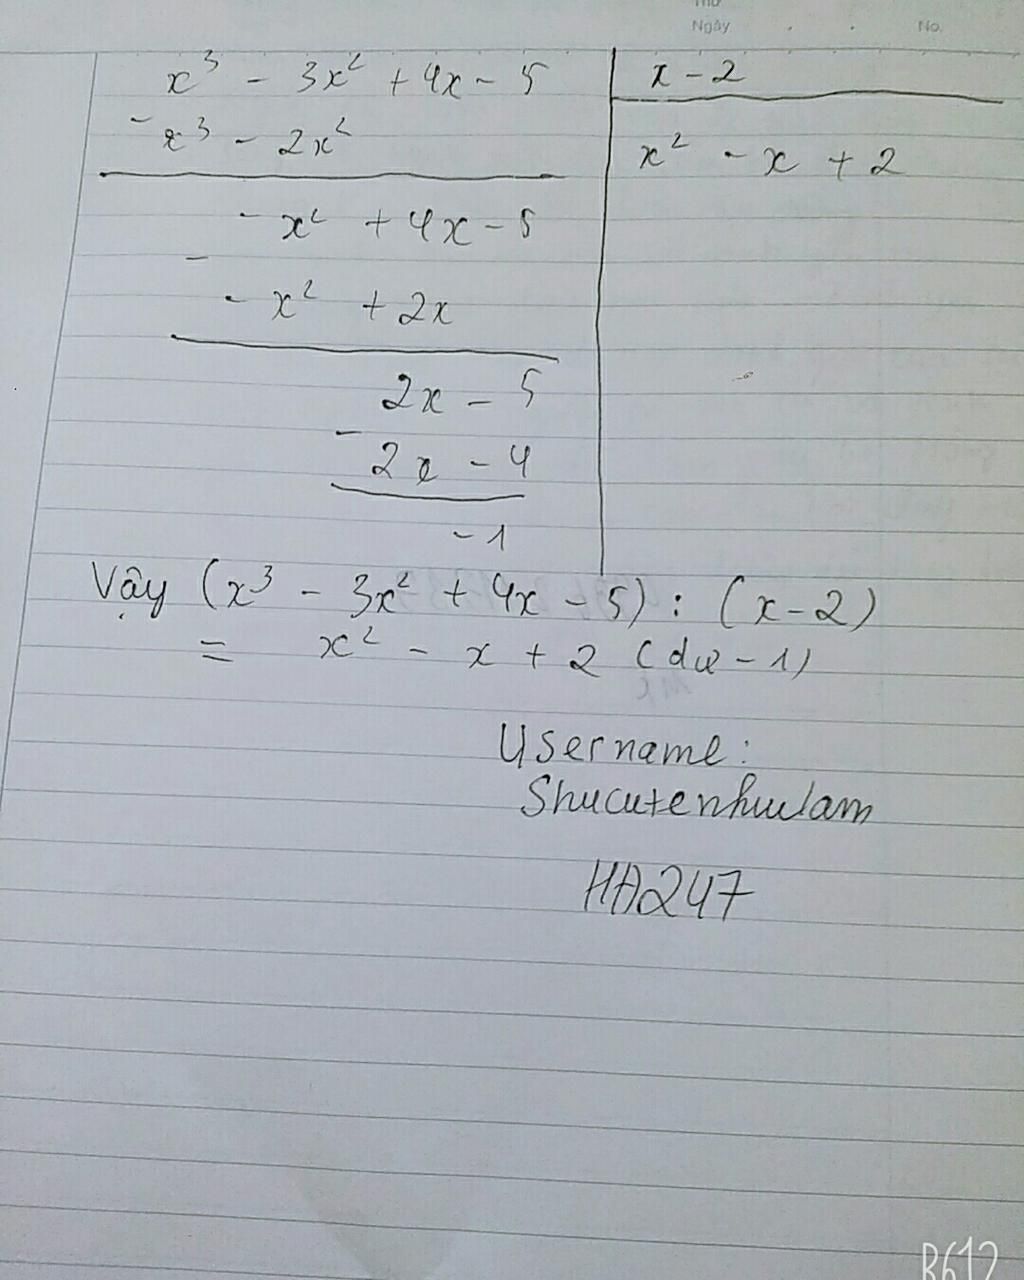 Thứ
Ngày . . No.
x³ - 3x² + 4x - 5 | x - 2
- x³ - 2x² | x² - x + 2
- x² + 4x - 5
-
- x² + 2x
2x - 5
-
2x - 4
- 1
Vậy (x³ - 3x² + 4x - 5) : (x - 2)
= x² - x + 2 (dư - 1)
Username:
Shucutenhulam
HA247
B612